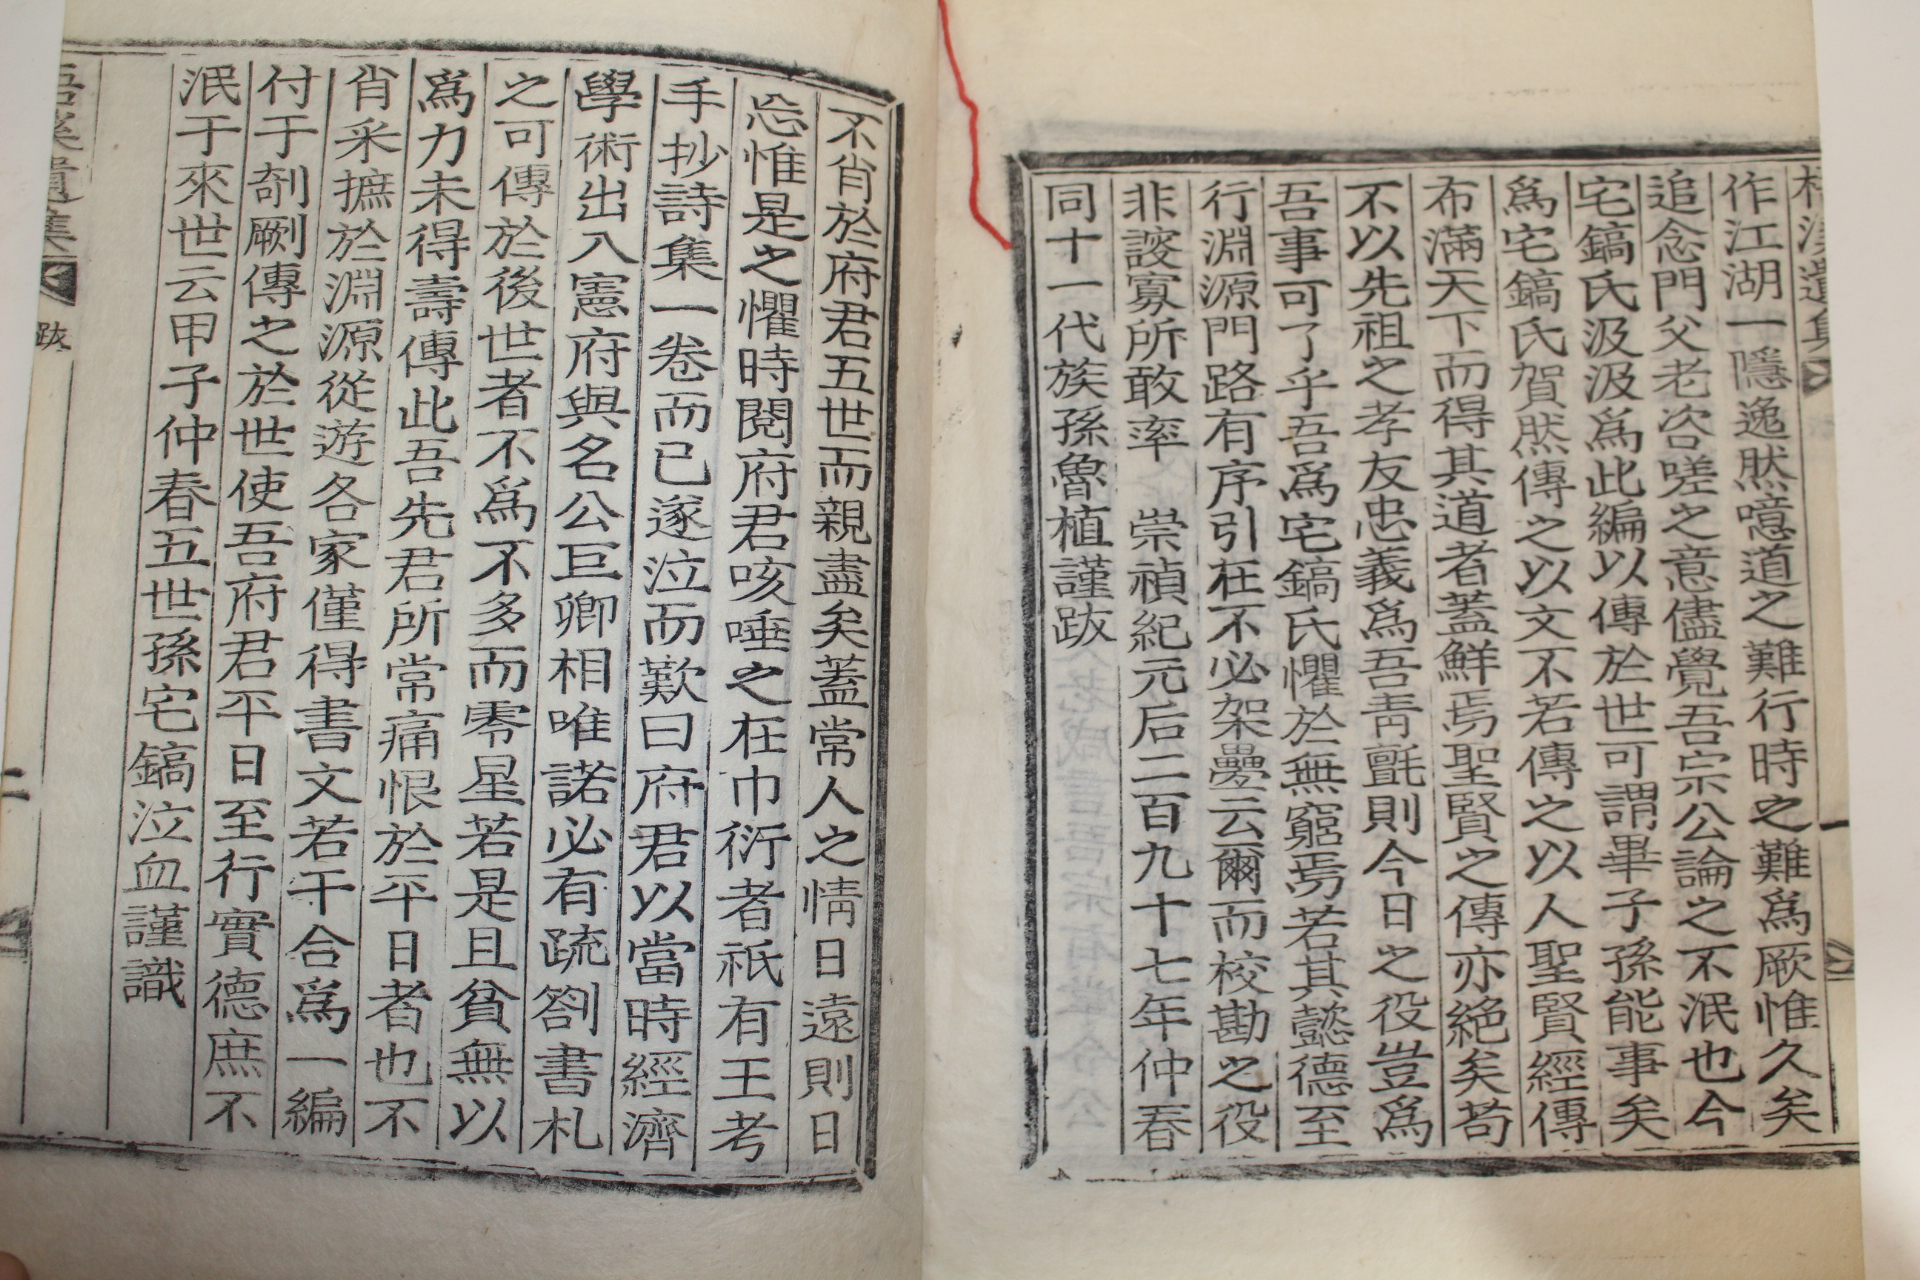 溪遺集
作江湖一隱逸然噫道之難行時之難爲厥惟久矣
追念門父老咨嗟之意儘覺吾宗公論之不泯也今
宅鎬氏汲汲爲此編以傳於世可謂畢子孫能事矣
爲宅鎬氏賀然傳之以文不若傳之以人聖賢經傳
布滿天下而得其道者蓋鮮焉聖賢之傳亦絕矣苟
不以先祖之孝友忠義爲吾靑氈則今日之役豈爲
吾事可了乎吾爲宅鎬氏懼於無窮焉若其懿德至
行淵源門路有序引在不必架疊云爾而校勘之役
非諓寡所敢率 崇禎紀元后二百九十七年仲春
同十一代族孫魯植謹跋
不肖於府君五世而親盡矣蓋常人之情日遠則日
忘惟是之懼時閱府君咳唾之在巾衍者祇有王考
手抄詩集一卷而已遂泣而歎曰府君以當時經濟
學術出入憲府與名公巨卿相唯諾必有疏劄書札
之可傳於後世者不爲不多而零星若是且貧無以
爲力未得壽傳此吾先君所常痛恨於平日者也不
肖采摭於淵源從遊各家僅得書文若干合爲一編
付于剞劂傳之於世使吾府君平日至行實德庶不
泯于來世云甲子仲春五世孫宅鎬泣血謹識
溪遺集 跋 二